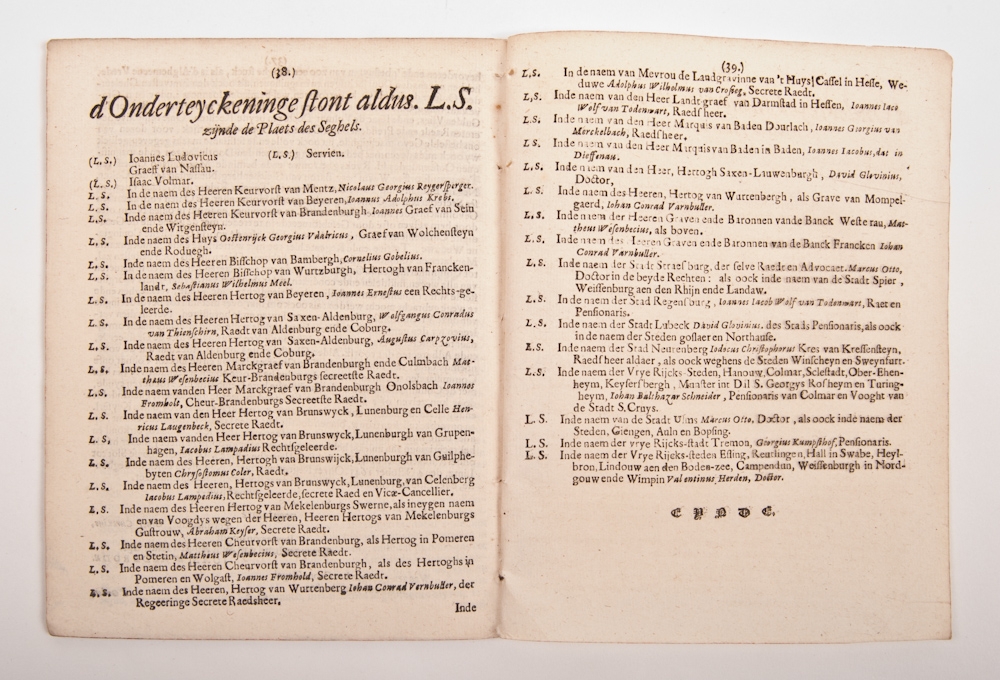 (38.)
d'Onderteyckeninge stont aldus. L.S.
zijnde de Plaets des Seghels.
(L.S.) Ioannes Ludovicus (L.S.) Servien.
Graeff van Nassau.
(L.S.) Isaac Volmar.
L.S. In de naem des Heeren Keurvorst van Mentz, Nicolaus Georgius Reygersperger.
L.S. In de naem des Heeren Keurvorst van Beyeren, Ioannus Adolphus Krebs.
L.S. Inde naem des Heeren Keurvorst van Brandenburgh Ioannes Graef van Sein
ende Witgensteyn.
L.S. Inde naem des Huys Oostenrijck Georgius Vdalricus, Graef van Wolchensteyn
ende Roduegh.
L.S. Inde naem des Heeren Bisschop van Bambergh, Cornelius Gobelius.
L.S. In de naem des Heeren Bisschop van Wurtzburgh, Hertogh van Francken-
landt, Sebastianus Wilhelmus Meel.
L.S. In de naem des Heeren Hertogh van Beyeren, Ioannes Ernestus een Rechts-ge-
leerde.
L.S. Inde naem des Heeren Hertogh van Saxen-Aldenburg, Wolfgangus Conradus
van Thienschirn, Raedt van Aldenburg ende Coburg.
L.S. Inde naem des Heeren Hertog van Saxen-Aldenburg, Augustus Carpzovius,
Raedt van Aldenburg ende Coburg.
L.S. Inde naem des Heeren Marckgraef van Brandenburgh ende Culmbach Mat-
thaus Wesenbecius Keur-Brandenburgs secreetste Raedt.
L.S. Inde naem vanden Heer Marckgraef van Brandenburgh Onolsbach Ioannes
Fromholt, Cheur-Brandenburgs Secreetste Raedt.
L.S. Inde naem van den Heer Hertog van Brunswyck, Lunenburg en Celle Hen-
ricus Laugenbeck, Secrete Raedt.
L.S, Inde naem vanden Heer Hertog van Brunswyck, Lunenburgh van Grupen-
hagen, Iacobus Lampadius Rechtsgeleerde.
L.S. Inde naem des Heeren, Hertogh van Brunswijck, Lunenburgh van Guilphe-
byten Chrysostomus Coler, Raedt.
L.S. Inde naem des Heeren, Hertogs van Brunswyck, Lunenburg, van Celenberg
Iacobus Lampadius, Rechtsgeleerde, secrete Raed en Vice-Cancellier.
L.S, Inde naem des Heeren Hertog van Mekelenburgs Swerne, als in eygen naem
en van Voogdys wegen der Heeren, Heeren Hertogs van Mekelenburgs
Gustrouw, Abraham Keyser, Secrete Raedt.
L.S. Inde naem des Heeren Cheurvorst van Brandenburg, als Hertog in Pomeren
en Stetin, Mattheus Wesenbecius, Secrete Raedt.
L.S. Inde naem des Heeren Cheurvorst van Brandenburgh, als des Hertoghs in
Pomeren en Wolgast, Ioannes Fromhold, Secrete Raedt.
L.S. Inde naem des Heeren, Hertog van Wurtenberg Iohan Conrad Vernbuller, der
Regeeringe Secrete Raedsheer.
Inde
(39.)
L.S. In de naem van Mevrou de Landgravinne van 't Huys Cassel in Hesse, We-
duwe Adolphus Wilhelmus van Crosieg, Secrete Raedt.
L,S. Inde naem van den Heer Landtgraef van Darmstad in Hessen, Ioannes Iaco
Wolf van Todenwart, Raedsheer.
L.S. Inde naem van den Heer Marquis van Baden Dourlach, Ioannes Georgius van
Merckelbach, Raedsheer.
L S. Inde naem van den Heer Marquis van Baden in Baden, Ioannes Iacobus, dat in
Dieffenau.
L.S. Inde naem van den Heer, Hertogh Saxen-Lauwenburgh, David Glovinius,
Doctor,
L.S. Inde naem des Heeren, Hertog van Wurtenbergh, als Grave van Mompel-
gaerd, Iohan Conrad Varnbuller.
L.S. Inde naem der Heeren Graven ende Baronnen vande Banck Westerau, Mat-
theus Wesenbecius, als boven.
L.S. Inde naem des Heeren Graven ende Baronnen van de Banck Francken Iohan
Conrad Varnbuller.
L.S. Inde naem der Stadt Straesburg, der selve Raedt en Advocaet. Marcus Otto,
Doctor in de beyde Rechten: als oock inde naem van de Stadt Spier,
Weissenburg aen den Rhijn ende Landaw.
L.S. Inde naem der Stad Regensburg, Ioannes Iacob Wolf van Todenwart, Raet en
Pensionaris.
L.S. Inde naem der Stadt Lubeck David Glovinius. des Stads Pensionaris, als oock
in de naem der Steden goslaer en Northause.
L.S. Inde naem der Stad Neurenberg Iodocus Christophorus Kres van Kressensteyn,
Raedsheer aldaer, als oock weghens de Steden Winscheyn en Sweynfurt.
L.S. Inde naem der Vrye Rijcks-Steden, Hanouw, Colmar, Sclestadt, Ober-Ehen-
heym, Keysersbergh, Munster int Dil S. Georgys Rosheym en Turing-
heym, Iohan Balthazar Schneider, Pensionaris van Colmar en Vooght van
de Stadt S. Cruys.
L.S. Inde naem van de Stadt Ulms Marcus Otto, Doctor, als oock inde naem der
Steden, Giengen, Auln en Bopfing.
L.S. Inde naem der vrye Rijcks-stadt Tremon, Giorgius Kumpsthof, Pensionaris.
L.S. Inde naem der Vrye Rijcks-steden Esling, Reutlingen, Hall in Swabe, Heyl-
bron, Lindouw aen den Boden-zee, Campendun, Weissenburgh in Nord-
gouw ende Wimpin Valentinus Herden, Doctor.
EYNDE.